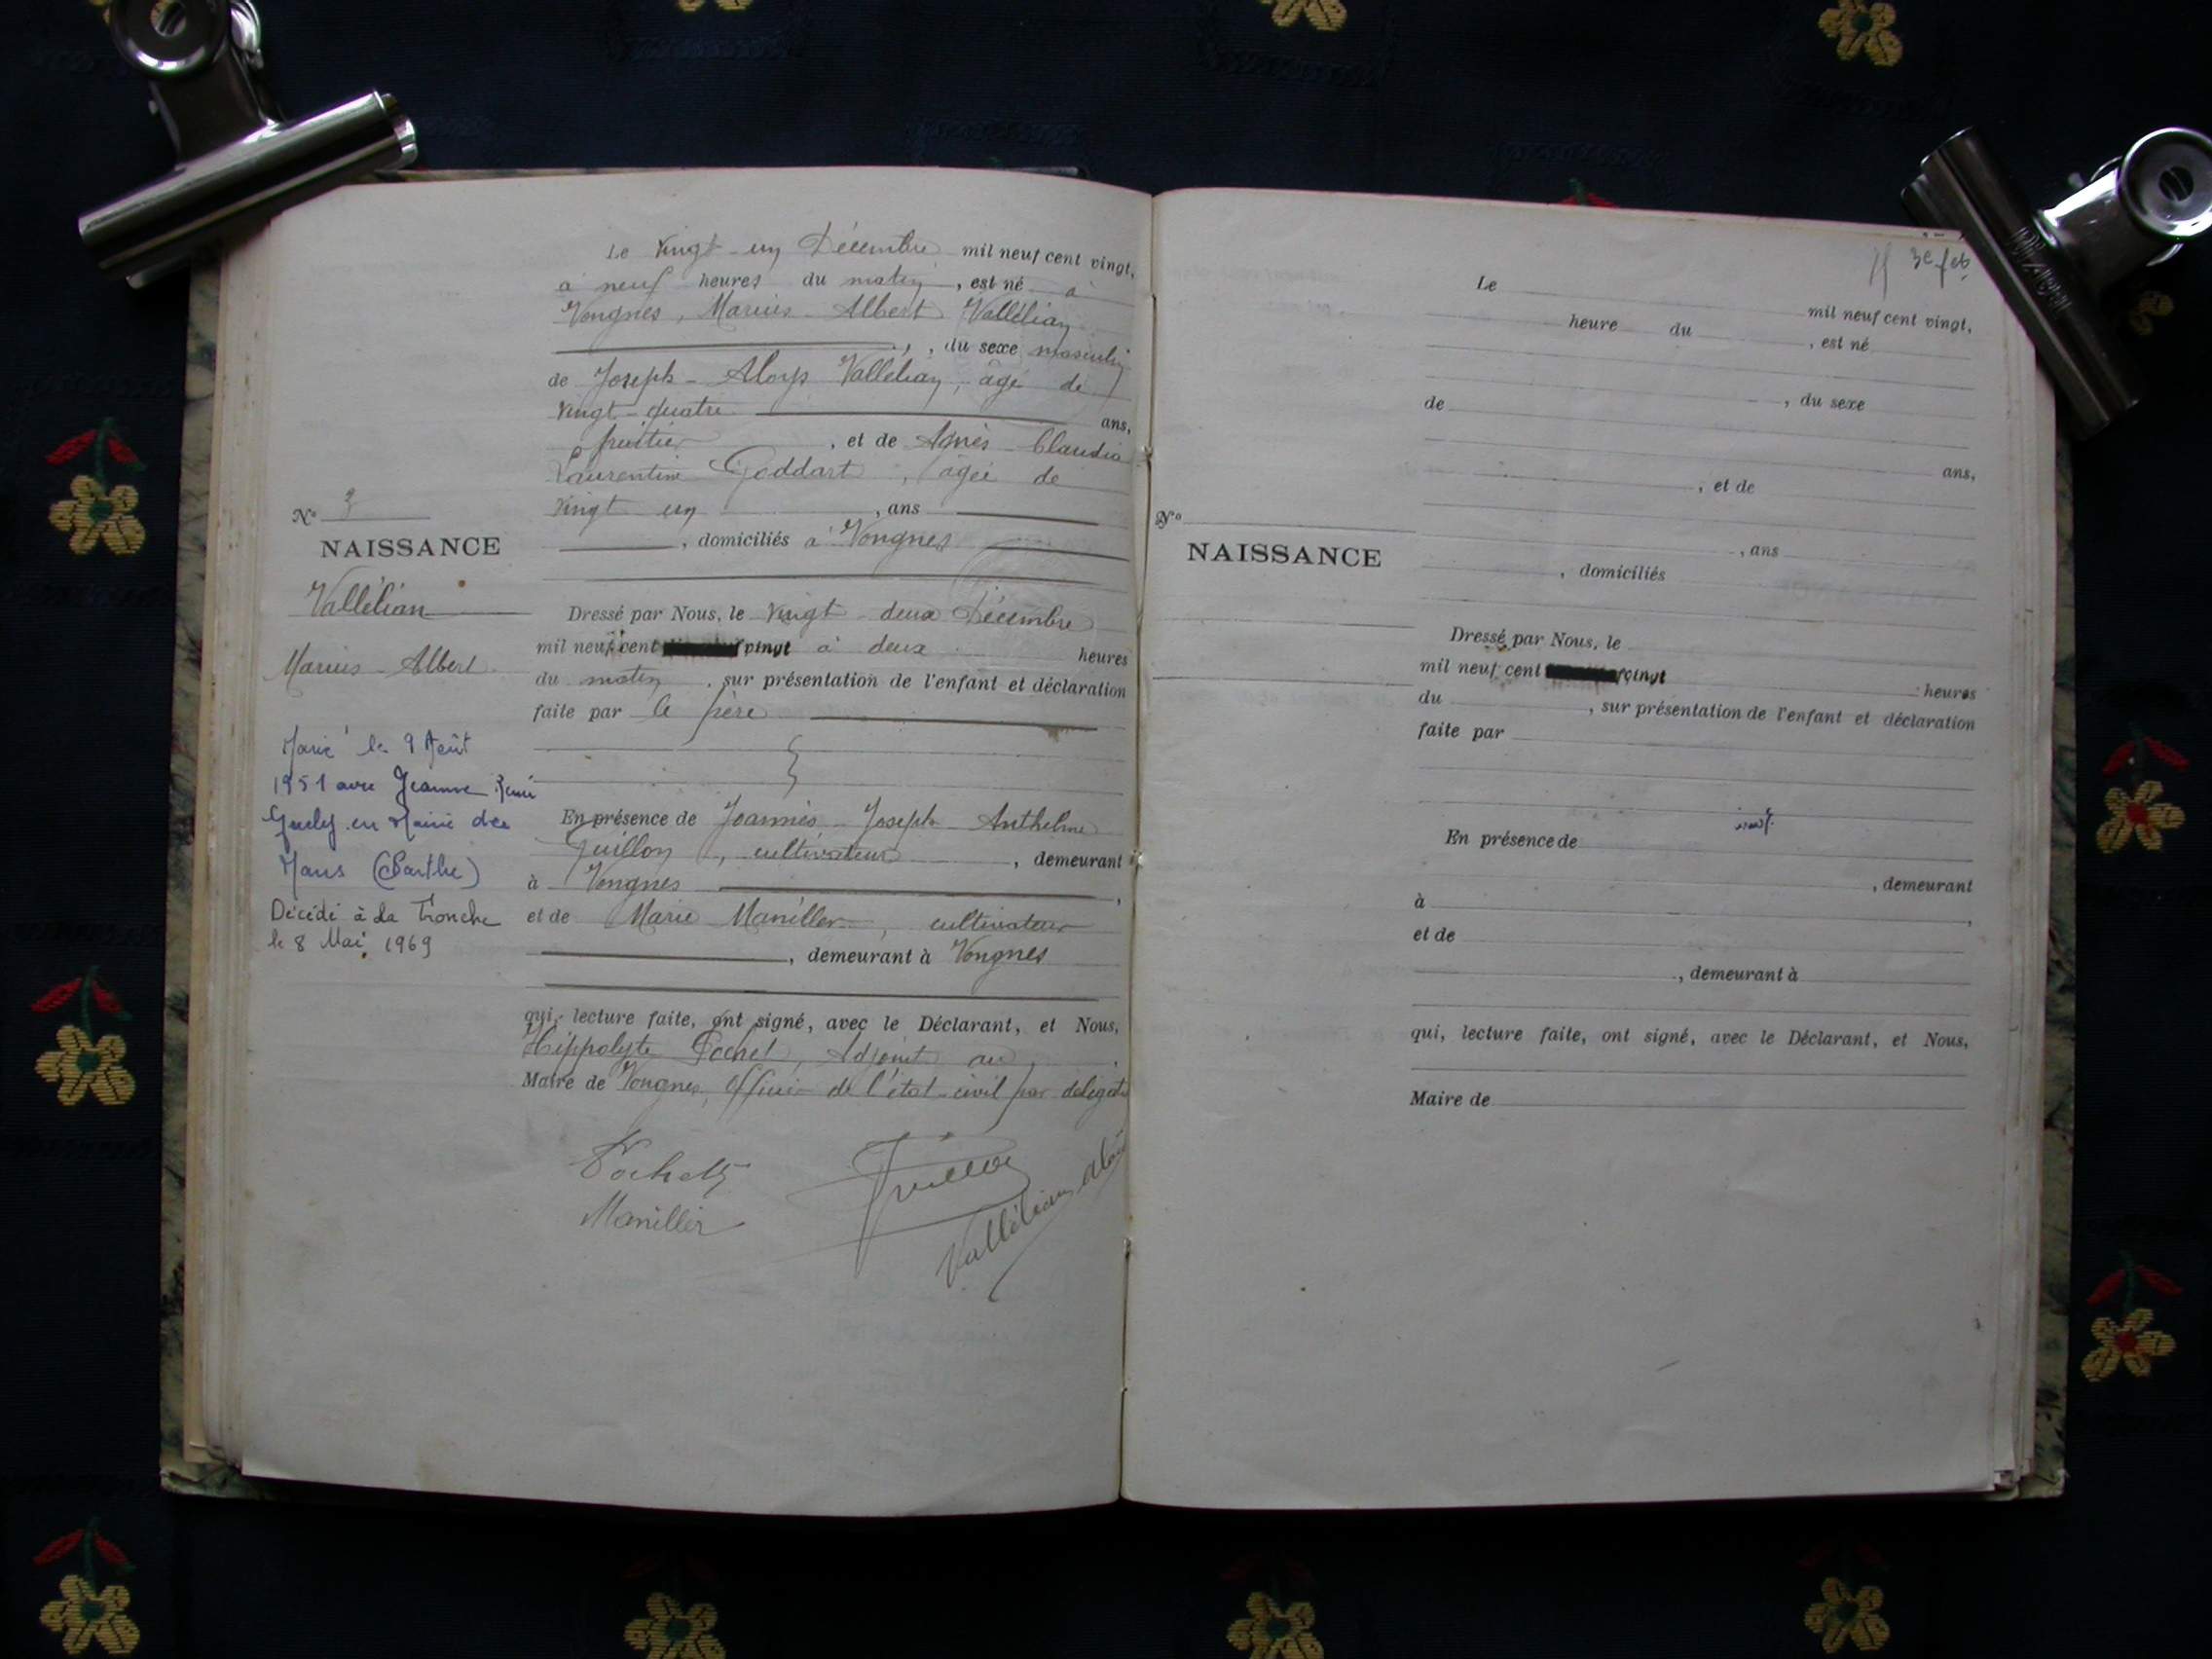 Le vingt-un Décembre mil neuf cent vingt,
à neuf heures du matin, est né à
Vongnes, Marius Albert Vallélian
, du sexe masculin
de Joseph-Aloys Vallélian, âgé de
vingt-quatre ans,
fruitier, et de Agnès Claudia
Laurentine Goddart, âgée de
vingt un, ans
, domiciliés à Vongnes
N°
NAISSANCE
Vallélian
Marius-Albert
Marié le 9 Août
1951 avec Jeanne
en Mairie
Mans (Sarthe)
Décédé à La Tronche
le 8 Mai 1969
Dressé par Nous, le vingt-deux Décembre
mil neuf cent vingt à deux heures
du matin, sur présentation de l'enfant et déclaration
faite par le père
En présence de Joannès Joseph Anthelme
Guillon, cultivateur, demeurant
à Vongnes,
et de Marie Maniller, cultivateur
, demeurant à Vongnes
qui, lecture faite, ont signé, avec le Déclarant, et Nous,
Hippolyte Pochet, Adjoint au
Maire de Vongnes, Officier de l'état-civil par
Pochet
Maniller
Vallélian
Le
mil neuf cent vingt,
heure du , est né
, du sexe
de
ans,
, et de
, ans
, domiciliés
N°
NAISSANCE
Dressé par Nous, le
mil neuf cent vingt heures
du , sur présentation de l'enfant et déclaration
faite par
En présence de
, demeurant
à ,
et de
, demeurant à
qui, lecture faite, ont signé, avec le Déclarant, et Nous,
Maire de